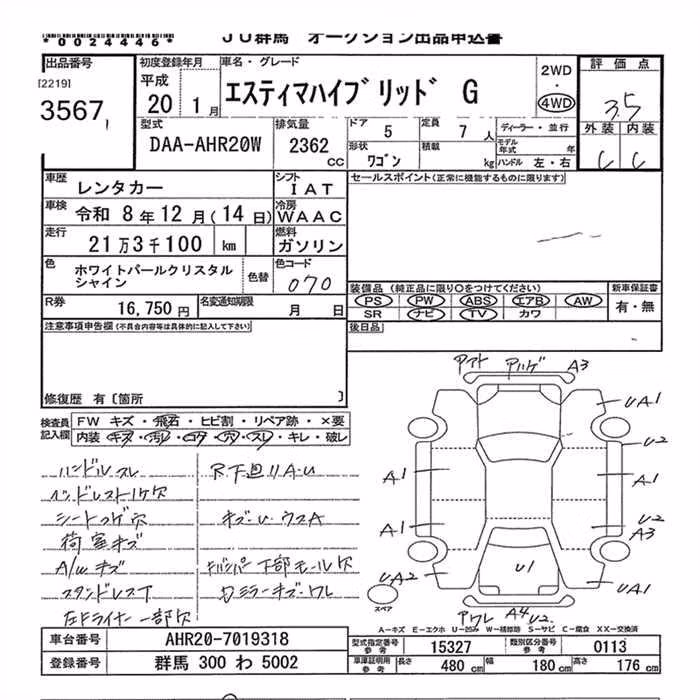 *0024446*
JU群馬 オークション出品申込書
出品番号
[2219]
3567
初度登録年月
平成
20 1月
車名・グレード
エスティマハイブリッド G
2WD
・
4WD
評価点
3.5
外装 内装
C C
型式
DAA-AHR20W
排気量
2362
CC
ドア 5
定員 7人
形状 ワゴン
積載 kg
ディーラー・並行
モデル年式 年
ハンドル 左・右
車歴 レンタカー
シフト IAT
車検 令和 8年12月(14日)
冷房 WAAC
走行 21万3千100 km
燃料 ガソリン
色 ホワイトパールクリスタルシャイン
色替
色コード 070
R券 16,750円
名変通知期限 月 日
セールスポイント(正常に機能するものに限ります)
装備品 (純正品に限り○をつけてください)
PS PW ABS エアB AW
SR ナビ TV カワ
新車保証書
有・無
後日品
注意事項申告欄(不具合内容等は具体的に記入して下さい)
修復歴 有〔箇所 〕
検査員記入欄
FW キズ・飛石・ヒビ割・リペア跡・×要
内装・キズ・汚レ・コゲ・穴・スレ・キレ・破レ
ハンドルスレ
R.下廻リA.U
シートコゲ穴
キズ・U・ウスA
荷室キズ
A/wキズ
下部モール欠
ミラーキズ・ワレ
一部欠
A3
UA1
U2
A1
A1
A1
U2
A3
A1
UA2
U1
UA1
A4 U2
スペア
A-キズ E-エクボ U-凹み W-補修跡 S-サビ C-腐食 XX-交換済
車台番号 AHR20-7019318
登録番号 群馬 300 わ 5002
型式指定番号 参考 15327
類別区分番号 参考 0113
車庫証明用 参考
長さ 480 cm
幅 180 cm
高さ 176 cm